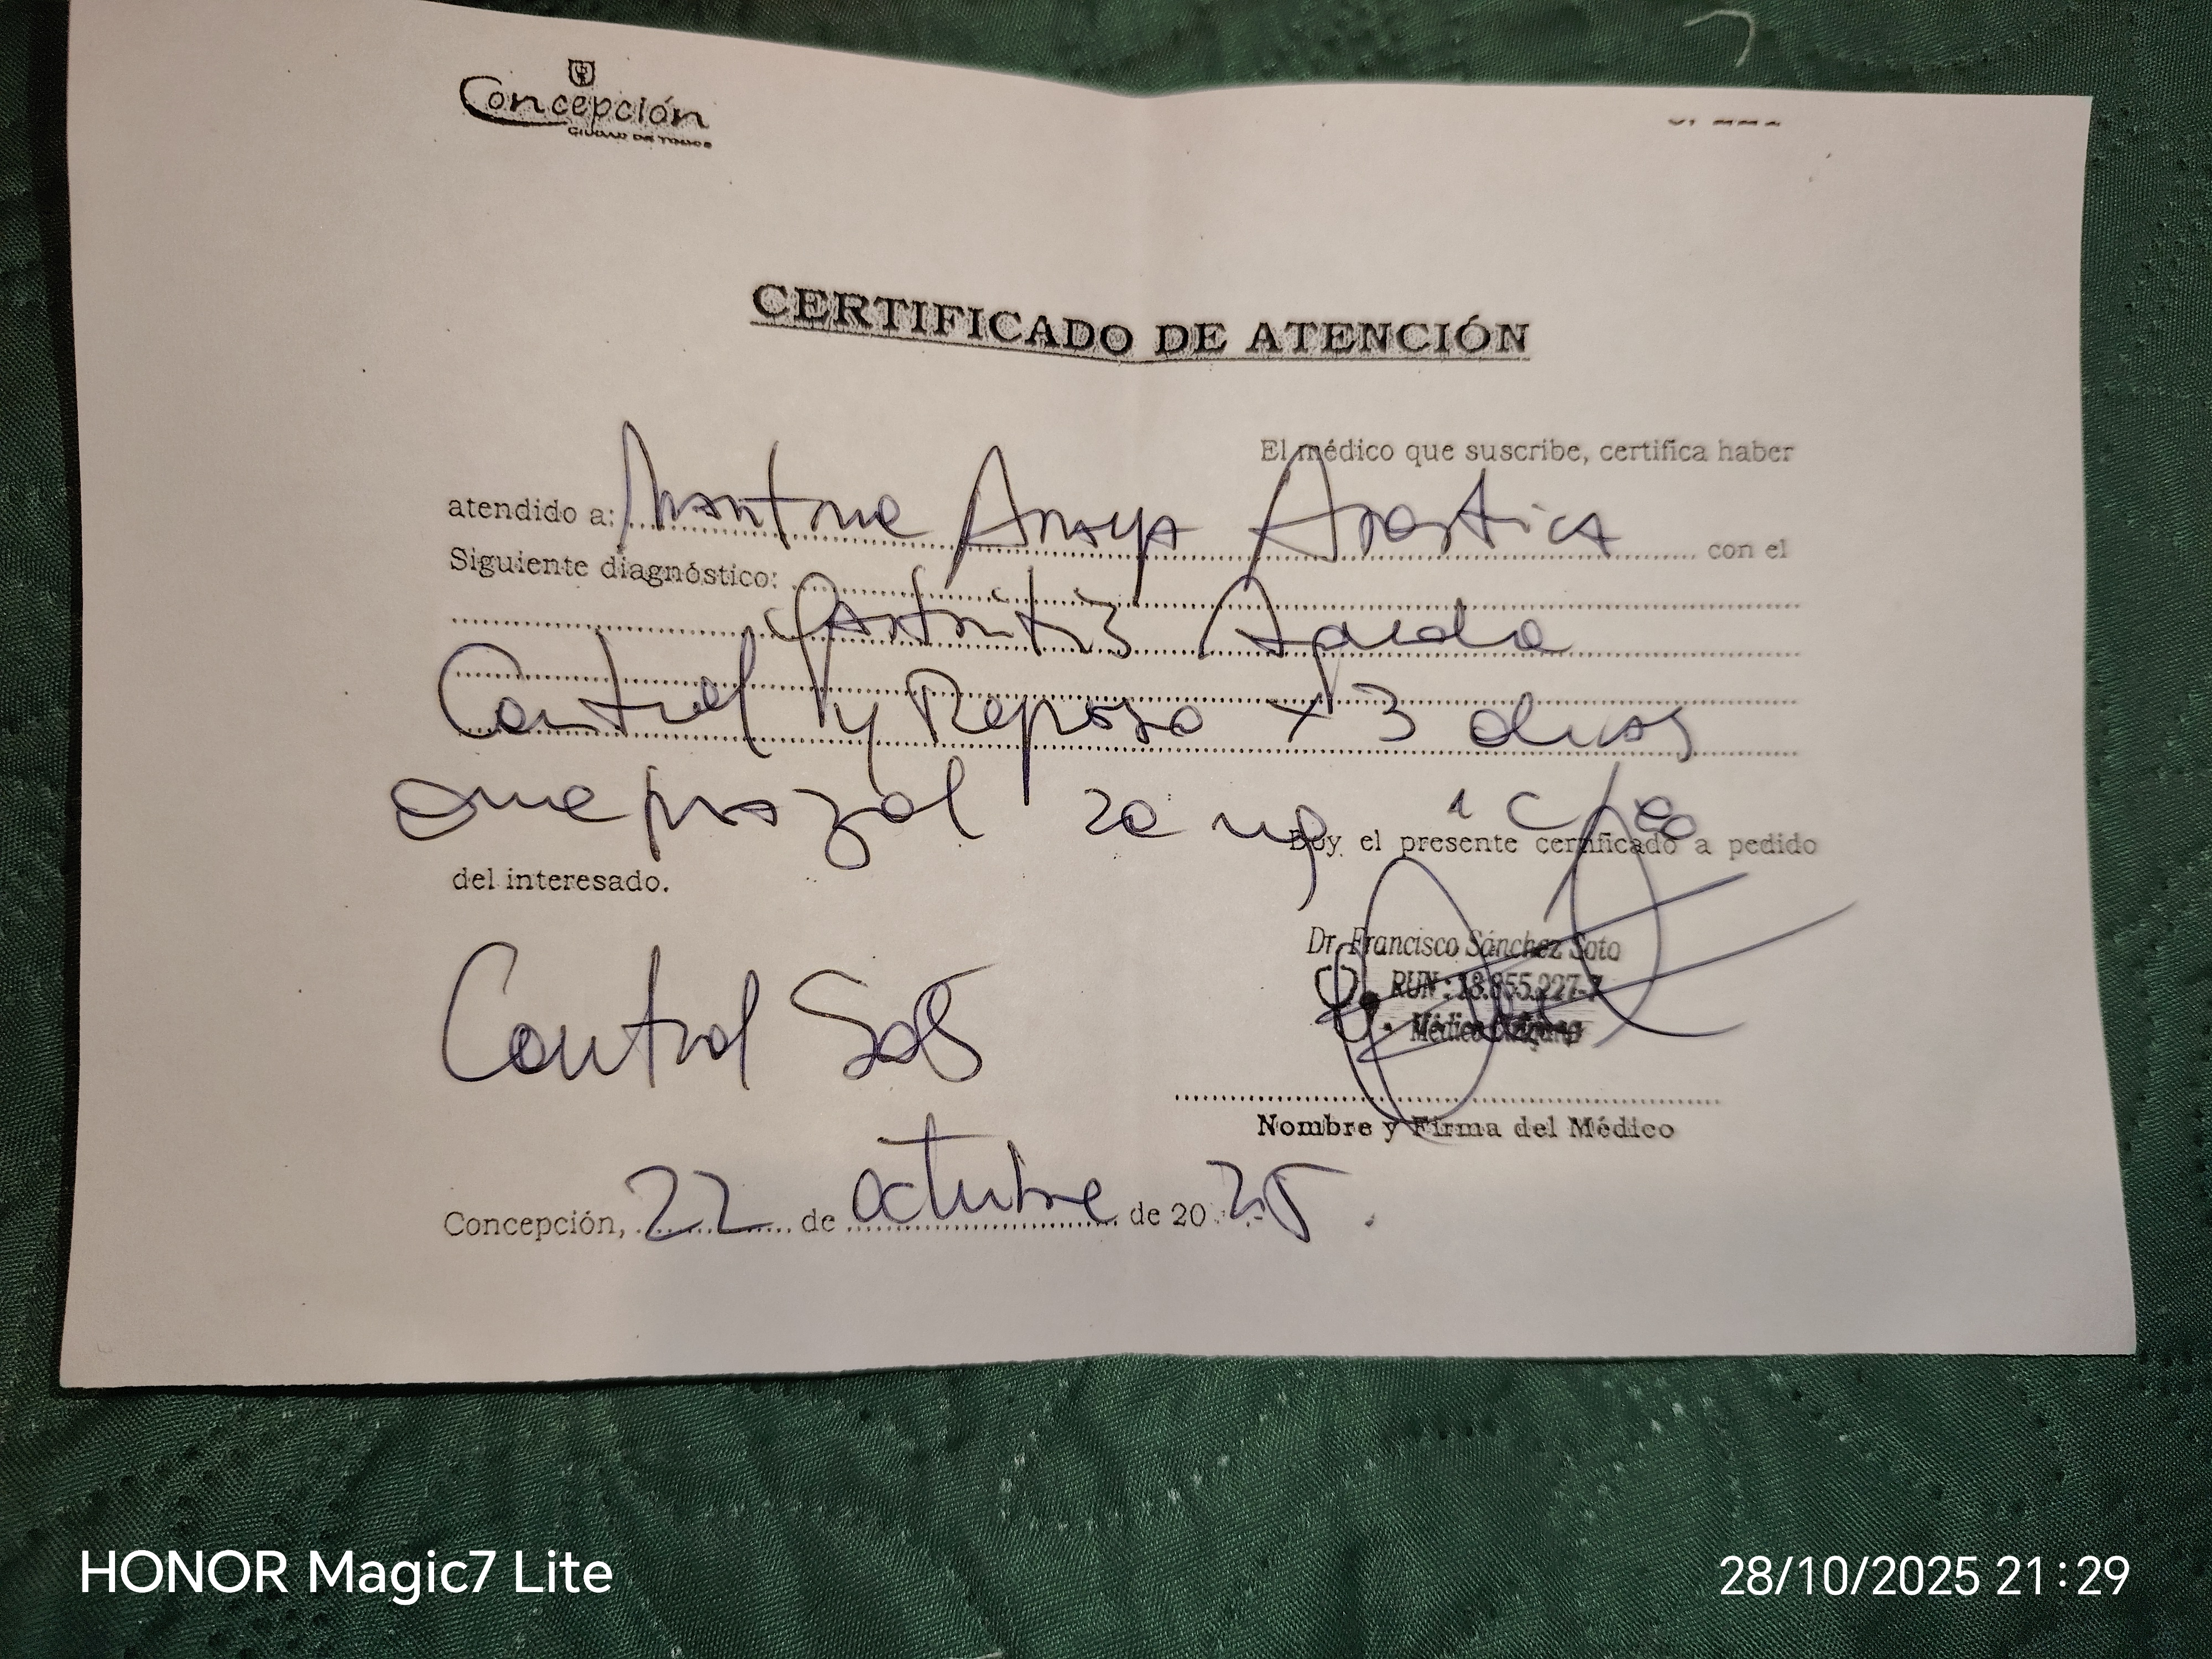 Concepción
CIUDAD DE TODOS
CERTIFICADO DE ATENCIÓN
El médico que suscribe, certifica haber
atendido a: Araya Arostica con el
Siguiente diagnóstico:
Gastritis Aguda
Control y Reposo x 3 dias
omeprazol 20 mg 1 c/
Doy el presente certificado a pedido
del interesado.
Dr. Francisco Sánchez Soto
RUN: 18.955.227-7
Médico Cirujano
Control SOS
Nombre y Firma del Médico
Concepción, 22 de octubre de 20 25
HONOR Magic7 Lite
28/10/2025 21:29